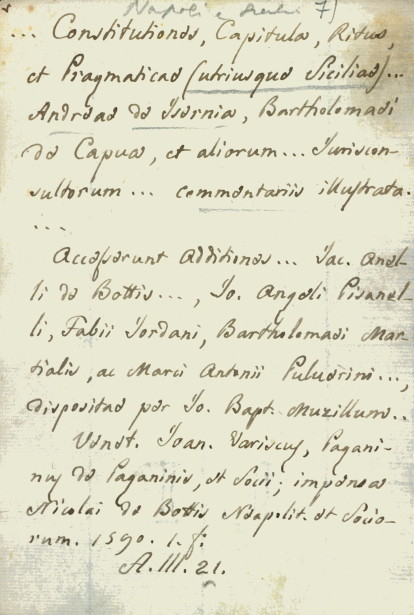 Napoli e Sicilia 7)
... Constitutiones, Capitula, Ritus,
et Pragmaticae (utriusque Siciliae)...
Andreae de Isernia, Bartholomaei
de Capua, et aliorum... Iuriscon-
sultorum... commentariis illustrata.
...
Accesserunt Additiones... Jac. Anel-
li de Bottis..., Jo. Angeli Pisanel-
li, Fabii Jordani, Bartholomaei Mar-
tialis, ac Marci Antonii Puluerini...,
dispositae per Jo. Bapt. Muzillum..
Venet. Joan. Variscus, Pagani-
nus de Paganinis, et Socii; impensa
Nicolai de Bottis Neapolit. et Socio-
rum. 1590. 1. f:
A. III. 21.